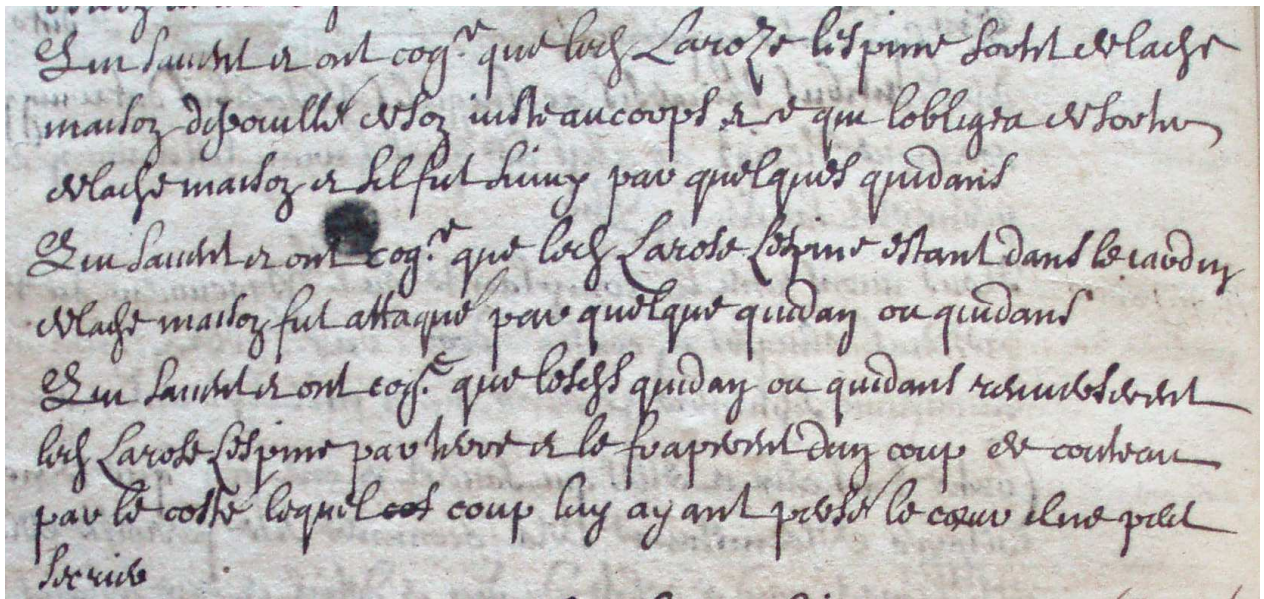 Qui savent et ont cog.ce que led. Laroze lespine sortit de lade
maison depouillé de son iusteaucorps et ce qui lobligea de sortir
de lade maison et sil fut suiuy par quelques quidans
Qui sauent et ont cog.ce que led. Larose Lespine estant dans le iardin
de lade maison fut attaqué par quelque quidan ou quidans
Qui sauent et ont cog.ce que lesds quidan ou quidans renuerserent
led. Larose Lespine par terre et le fraperent dun coup de couteau
par le costé lequel coup luy ayant persé le cœur il ne peut
secrier